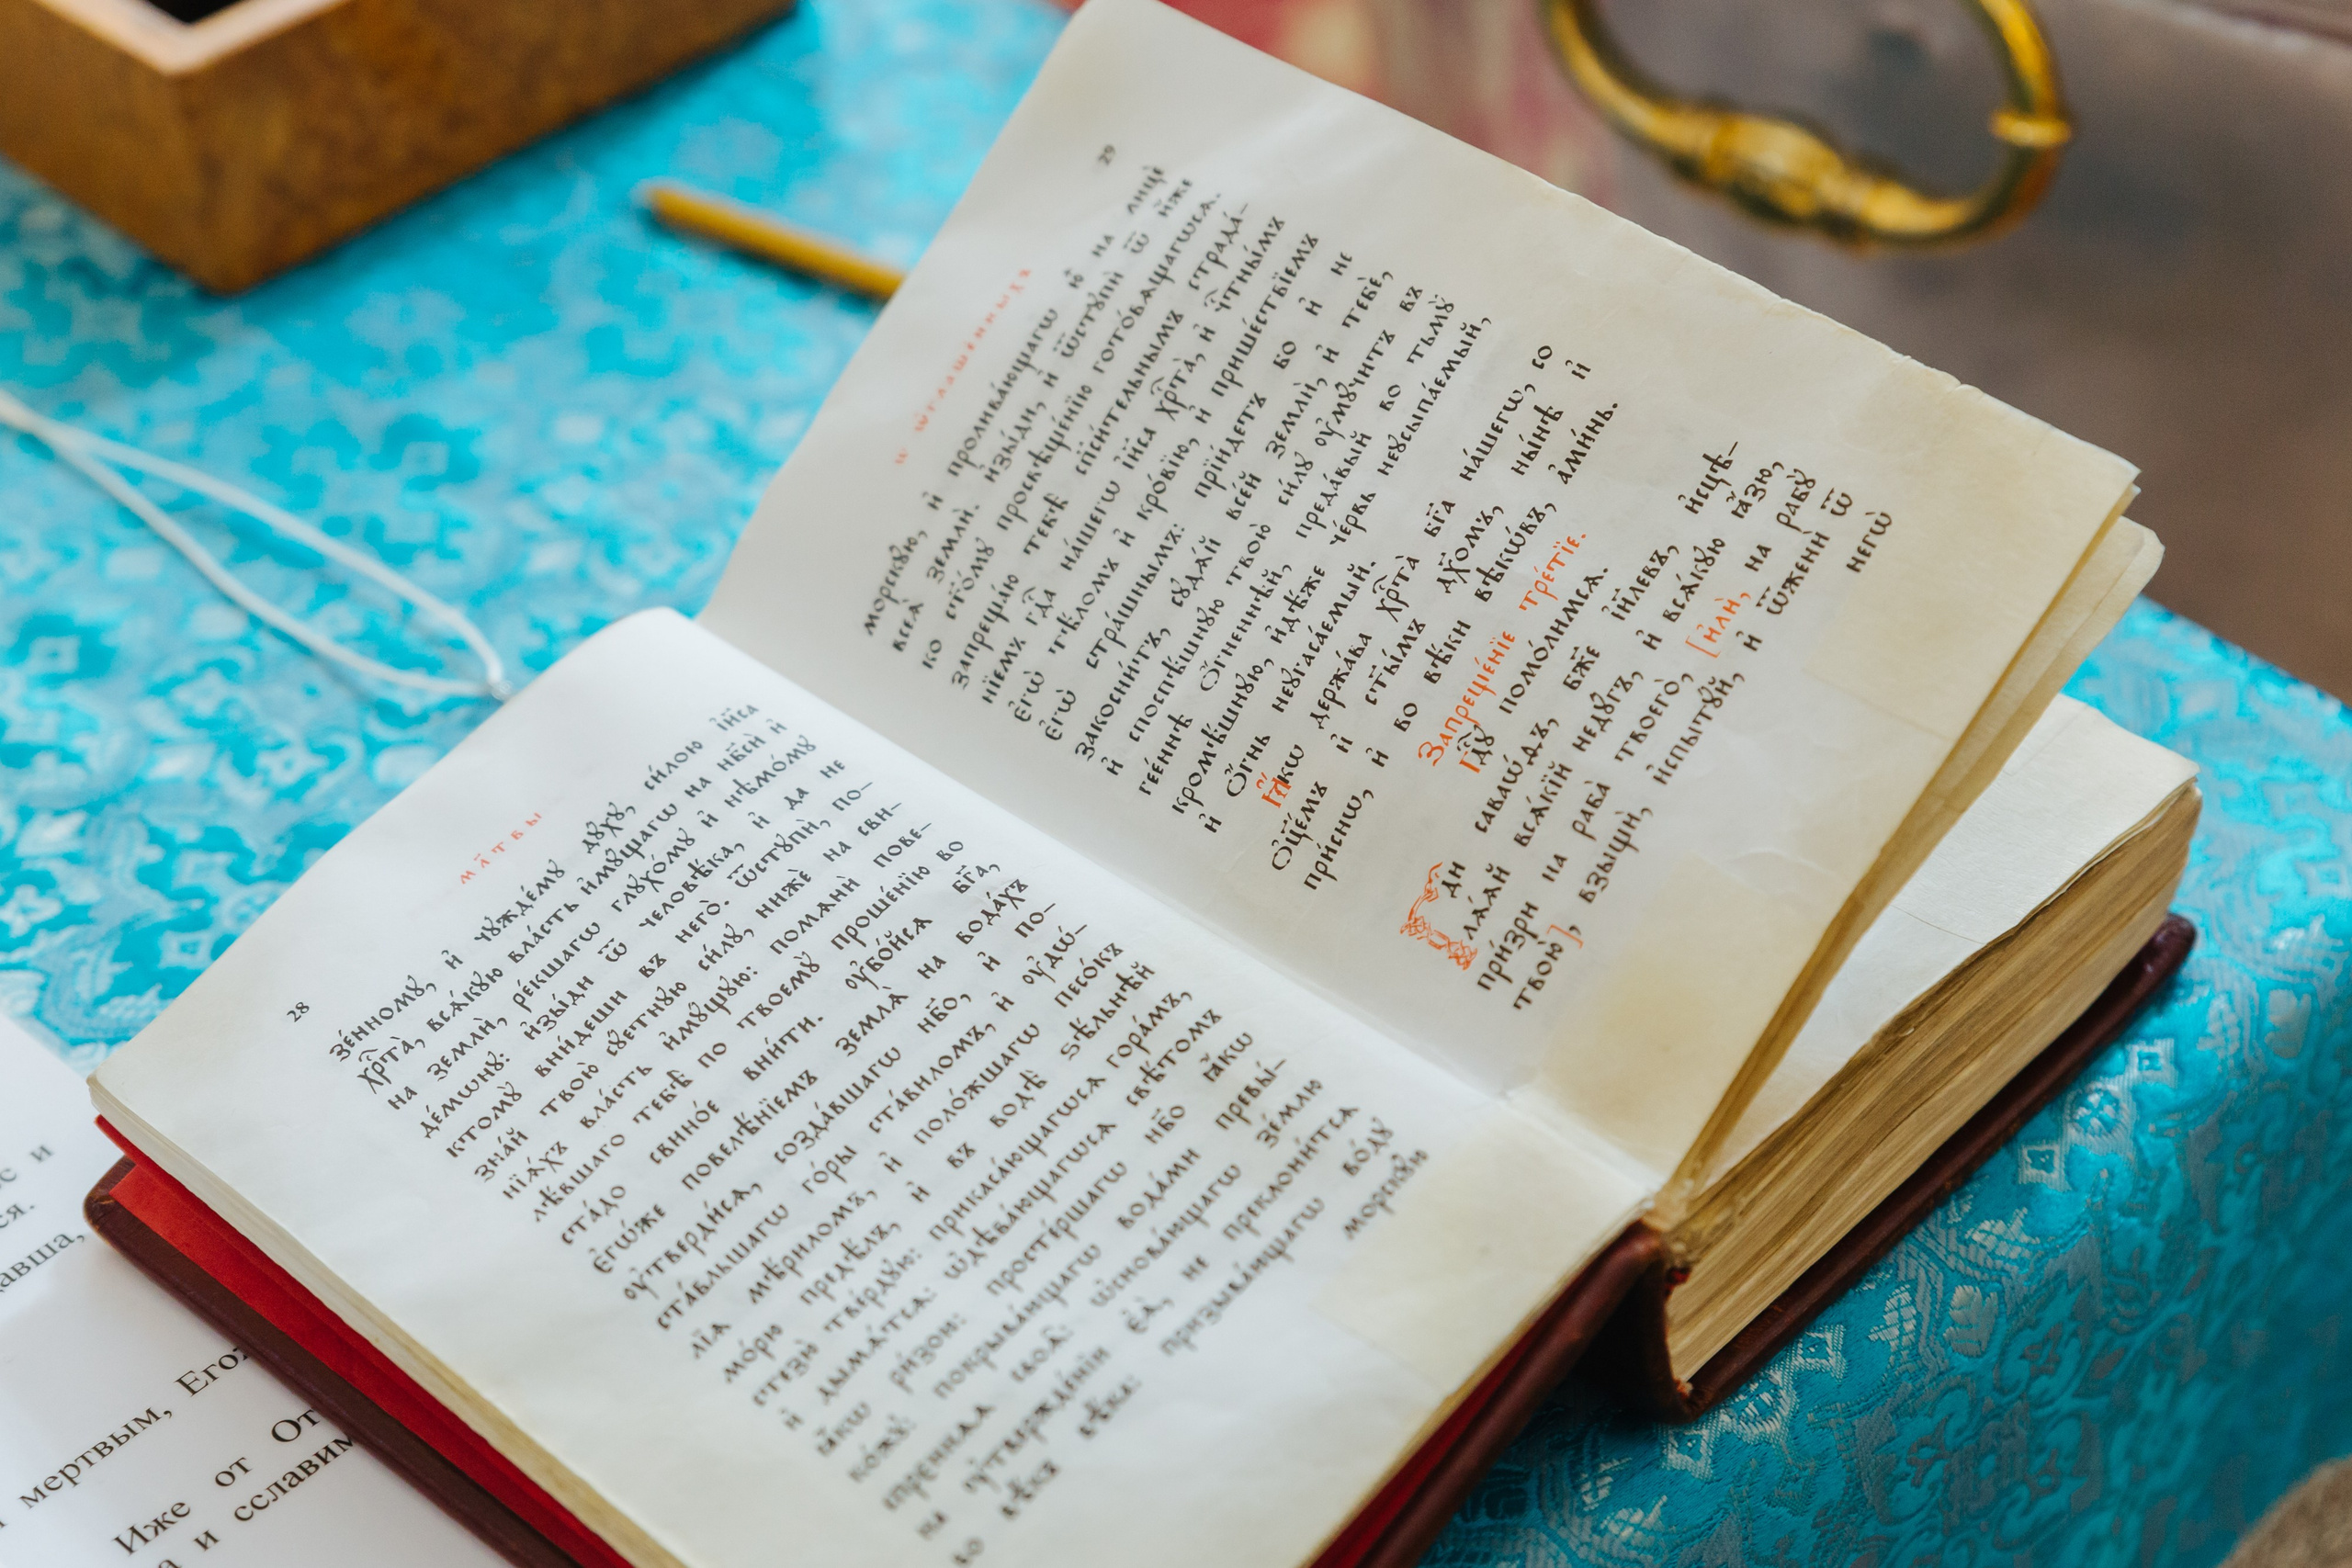 28
мл҃твы
зе́нномꙋ, и҆ чꙋжде́мꙋ дꙋ́хꙋ, си́лою і҆и҃са
хрⷭ҇та̀, всѧ́кꙋю вла́сть и҆мꙋ́щагѡ на нб҃сѝ и҆
на землѝ, ре́кшагѡ глꙋхо́мꙋ и҆ нѣмо́мꙋ
де́мѡнꙋ: и҆зы́ди ѿ человѣ́ка, и҆ да не
ктомꙋ̀ вни́деши въ него̀. ѿстꙋпѝ, по-
зна́й твою̀ сꙋ́етнꙋю си́лꙋ, нижѐ на сви-
нїѧ́хъ вла́сть и҆мꙋ́щꙋю: помѧнѝ пове-
лѣ́вшаго тебѣ̀ по твоемꙋ̀ проше́нїю во
ста́до свино́е вни́ти. ᲂу҆бо́йсѧ бг҃а,
є҆гѡ́же повелѣ́нїемъ землѧ̀ на вода́хъ
ᲂу҆тверди́сѧ, созда́вшагѡ нб҃о, и҆ по-
ста́вльшагѡ го́ры ста́виломъ, и҆ ᲂу҆дѡ́-
лїѧ мѣ́риломъ, и҆ поло́жшагѡ песо́къ
мо́рю предѣ́лъ, и҆ въ водѣ̀ ѕѣ́льнѣй
стезѝ тве́рдꙋю: прикаса́ющагѡсѧ гора́мъ,
и҆ дымѧ́тсѧ: ѡ҆дѣва́ющагѡсѧ свѣ́томъ
ꙗ҆́кѡ ри́зою: просте́ршагѡ нб҃о ꙗ҆́кѡ
ко́жꙋ: покрыва́ющагѡ вода́ми превы́-
спреннѧѧ своѧ̑: ѡ҆снова́вшагѡ зе́млю
на ᲂу҆твержде́нїи є҆ѧ̀, не преклони́тсѧ
во вѣ́къ вѣ́ка: призыва́ющагѡ во́дꙋ
морскꙋ́ю
29
ѡ҆ ѡ҆глаше́нныхъ
морскꙋ́ю, и҆ пролива́ющагѡ ю҆̀ на лицѐ
всеѧ̀ землѝ. и҆зы́ди, и҆ ѿстꙋпѝ ѿ и҆̀же
ко ст҃о́мꙋ просвѣще́нїю гото́вѧщагѡсѧ.
запреща́ю тебѣ̀ спⷭ҇и́тельнымъ страда́-
нїемъ гдⷭ҇а на́шегѡ і҆и҃са хрⷭ҇та̀, и҆ чтⷭ҇ны́мъ
є҆гѡ̀ тѣ́ломъ и҆ кро́вїю, и҆ прише́ствїемъ
є҆гѡ̀ стра́шнымъ: прїи́детъ бо и҆ не
закосни́тъ, сꙋдѧ́й все́й землѝ, и҆ тебѐ,
и҆ споспѣ́шнꙋю твою̀ си́лꙋ ᲂу҆мꙋ́читъ въ
гее́ннѣ ѻ҆́гненнѣй, преда́вый во тьмꙋ̀
кромѣ́шнюю, и҆дѣ́же че́рвь неꙋсыпа́емый,
и҆ ѻ҆́гнь неꙋгаса́емый.
Ꙗ҆́кѡ держа́ва хрⷭ҇та̀ бг҃а на́шегѡ, со
ѻ҆ц҃е́мъ и҆ ст҃ы́мъ дх҃омъ, ны́нѣ и҆
при́снѡ, и҆ во вѣ́ки вѣкѡ́въ, а҆ми́нь.
Запреще́нїе тре́тїе.
Гдⷭ҇ꙋ помо́лимсѧ.
Гдⷭ҇и саваѡ́ѳъ, бж҃е і҆и҃левъ, и҆сцѣ-
лѧ́ѧй всѧ́кїй недꙋ́гъ, и҆ всѧ́кꙋю ꙗ҆́зю,
при́зри на раба̀ твоего̀, [и҆лѝ, на рабꙋ̀
твою̀], взыщѝ, и҆спытꙋ́й, и҆ ѿженѝ ѿ
негѡ̀
с и
ся.
авша,
мертвым, Его
Иже от От
а и сславим